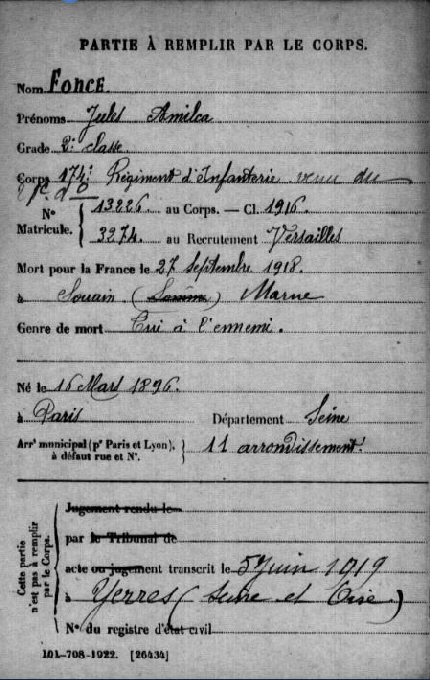 PARTIE À REMPLIR PAR LE CORPS.
Nom Fonce
Prénoms Jules Amilca
Grade 2e classe
Corps 174e Régiment d'Infanterie venu du
N° 13226. au Corps. — Cl. 1916.
Matricule. 3274. au Recrutement Versailles
Mort pour la France le 27 Septembre 1918.
à Souain () Marne
Genre de mort Tué à l'ennemi.
Né le 16 Mars 1896.
à Paris Département Seine
Arrt municipal (pr Paris et Lyon), 11 arrondissement
à défaut rue et N°.
Cette partie n'est pas à remplir par le Corps.
Jugement rendu le
par le Tribunal de
acte ou jugement transcrit le 5 Juin 1919
à Yerres (Seine et Oise)
N° du registre d'état civil
101-708-1922. [26434]